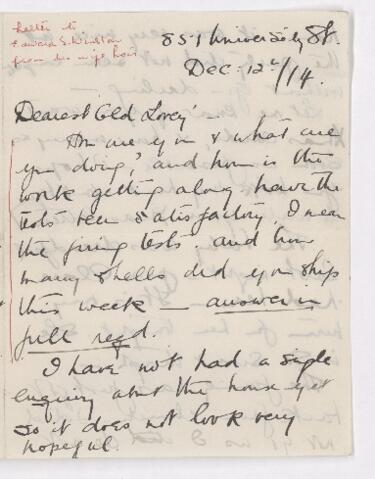 letter to
Edward S. Winston
from his wife
851 University St.
Dec: 12th/14.
Dearest Old Lovey'.
How are you & what are
you doing', and how is the
work getting along have the
tests been satisfactory, I mean
the firing tests. and how
many shells did you ship
this week — answer in
full reqd.
I have not had a single
enquiry about the house yet
so it does not look very
hopeful.